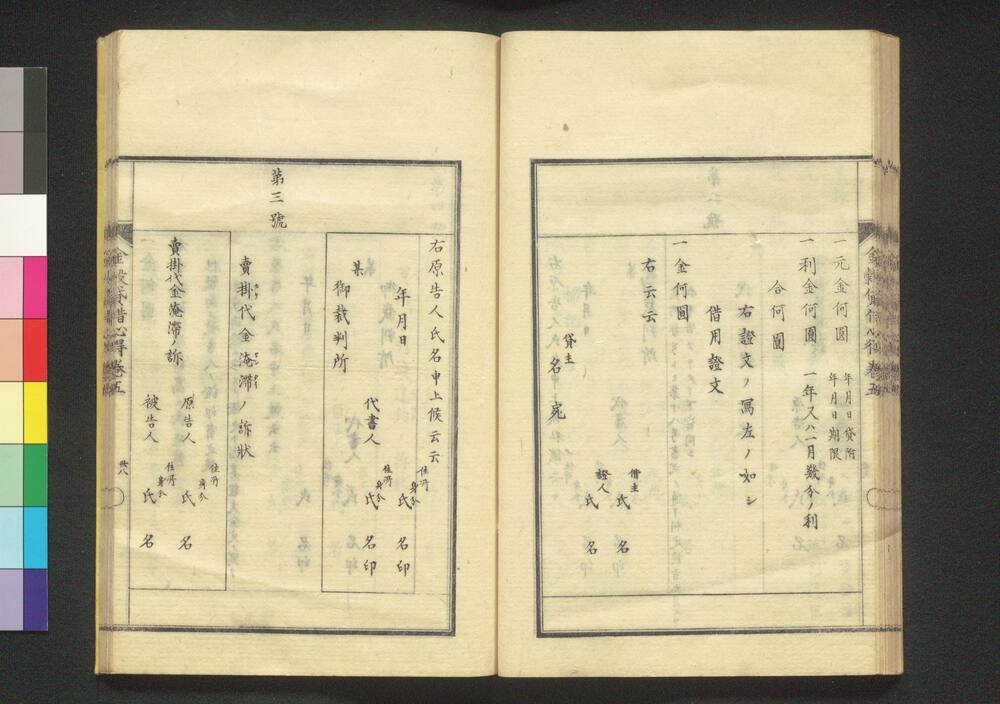 一元金何圓 年月日貸附
年月日期限
一利金何圓 一年又ハ一月幾分ノ利
合何圓
右證文ノ寫左ノ如シ
借用證文
一金何圓
右云云
借主 氏 名
證人 氏 名
貸主 名 宛
右原告人氏名申上候云云
年月日
住所 身分 氏 名 印
代書人 住所 身分 氏 名 印
某 御裁判所
第三號
賣掛代金淹滯ノ訴狀
賣掛代金淹滯ノ訴
原告人 住所 身分 氏 名
被告人 住所 身分 氏 名
卷五